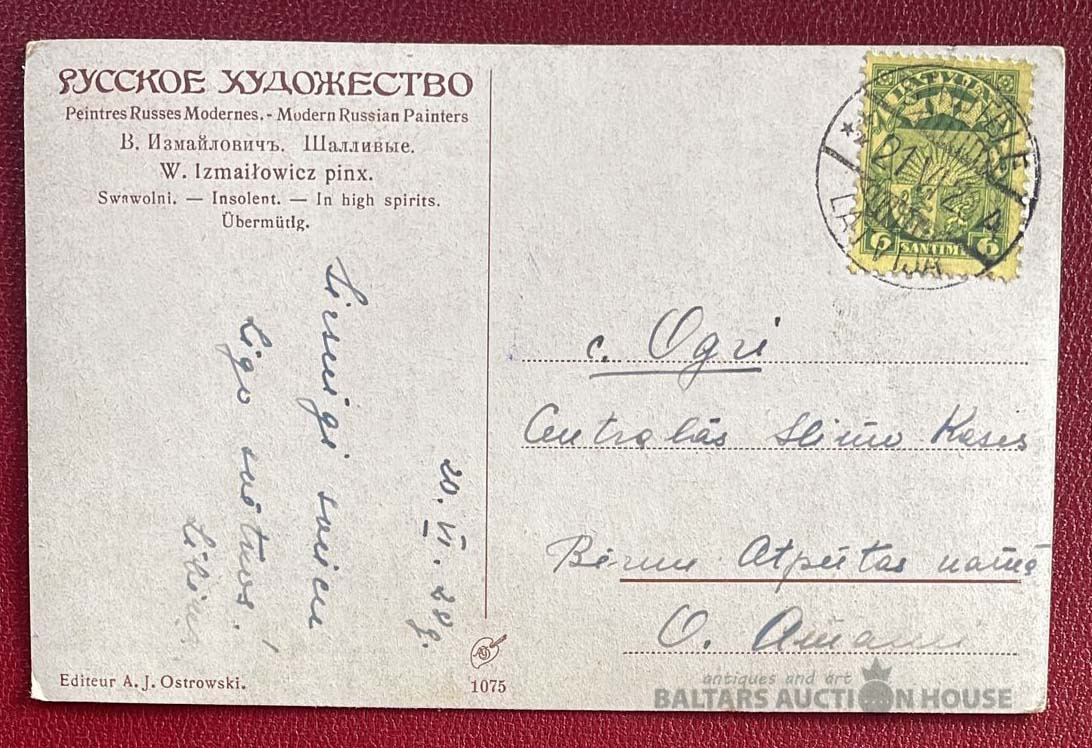 РУССКОЕ ХУДОЖЕСТВО
Peintres Russes Modernes. - Modern Russian Painters
В. Измайловичъ. Шалливые.
W. Izmaiłowicz pinx.
Swawolni. — Insolent. — In high spirits.
Übermütig.
Sirsnīgi sveicu
Līgo svētkos!
20. VI. 28 g.
Editeur A. J. Ostrowski.
1075
LATVIJA
6 SANTIMI 6
LATVIJA
c. Ogrē
Centralās Slimo Kases
Bērnu Atpūtas namā
O.
antiques and art
BALTARS AUCTION HOUSE